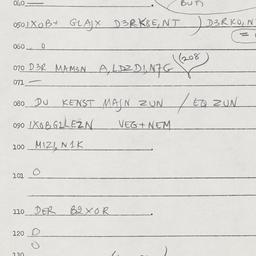 040
BUT1
050 IXOB+ GLAJX D3RK8E,NT ) D3RKU,N
060 0
070 D3R MAMSN A,LDZD!N7G (208
071 —
080 DU KENST MAJN ZUN / EQ ZUN
090 IXOBG2LEZN VEG+NEM
100 MIZ!N1K
101 0
110 DER B2XOR
120 0
0
130